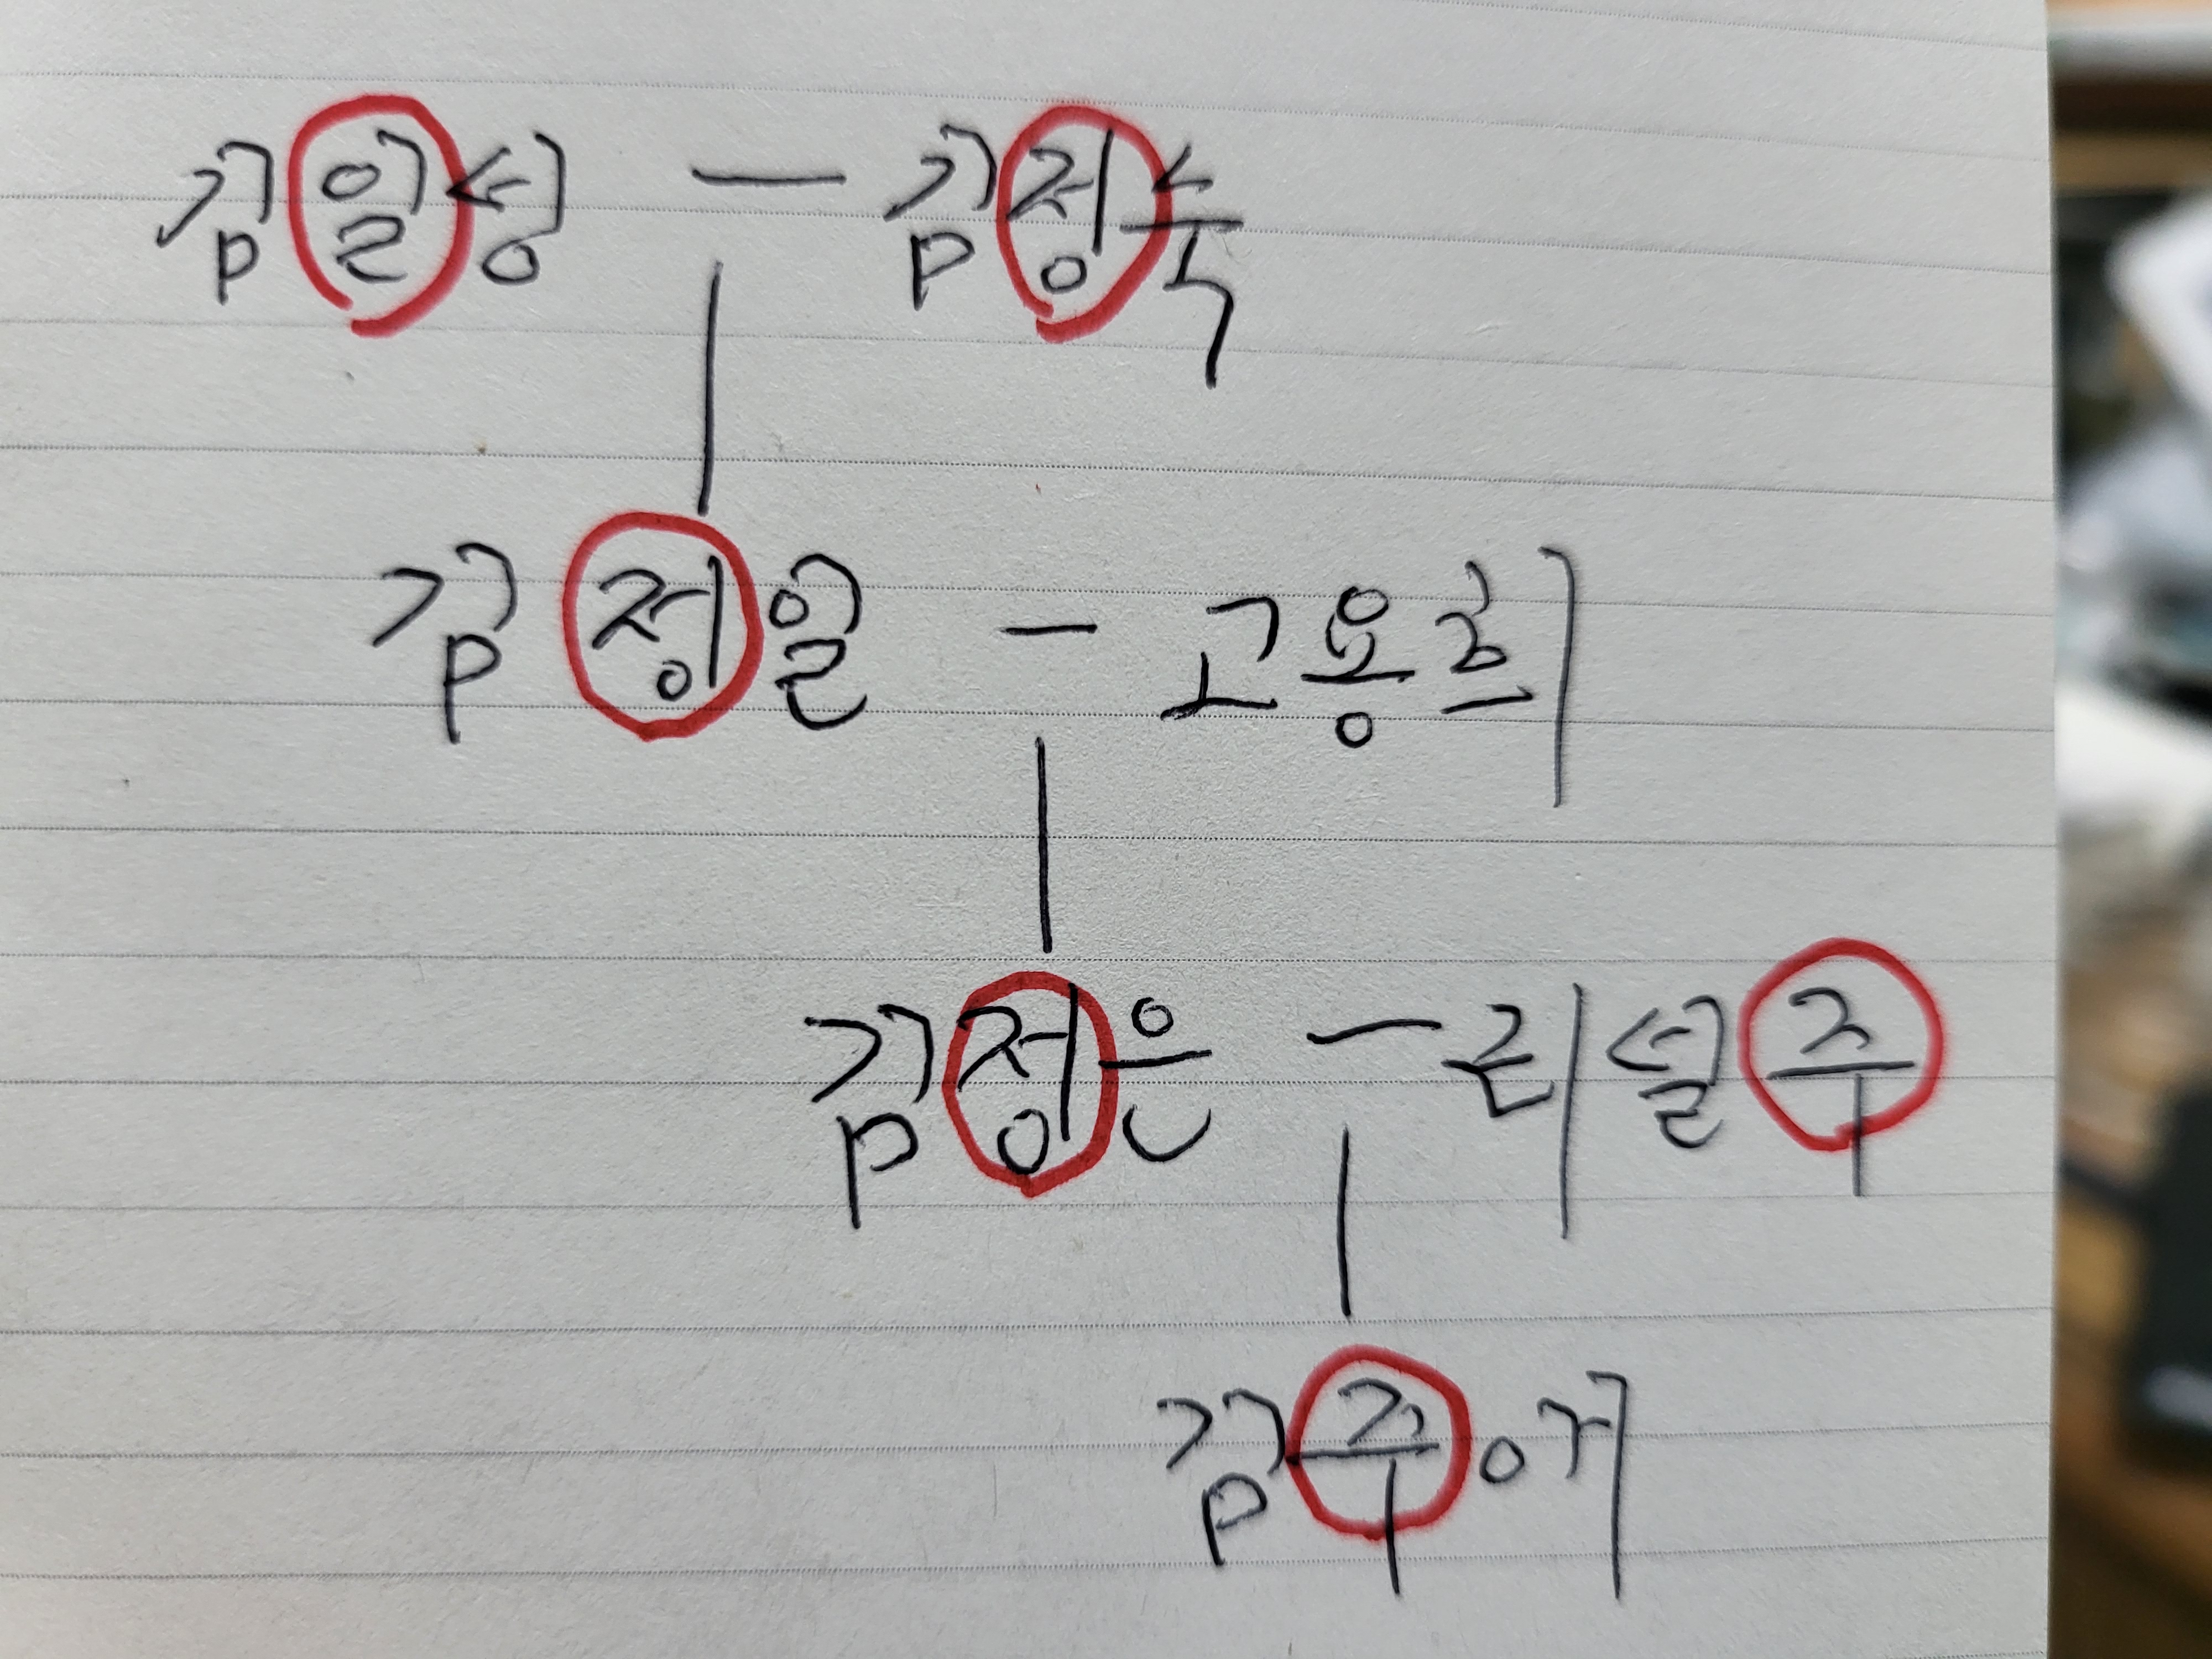 김일성 — 김정숙
김정일 — 고용희
김정은 — 리설주
김주애